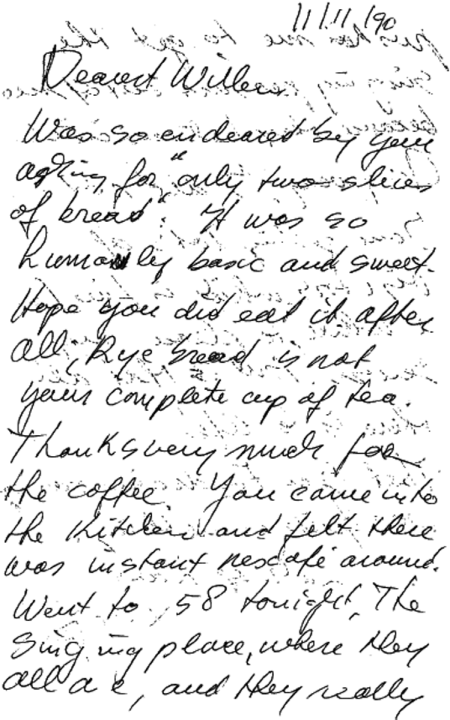 11/11/90
Dearest Willem
Was so endeared by your
asking for "only two slices
of bread". It was so
humanly basic and sweet.
Hope you did eat it after
all, Rye bread is not
your complete cup of tea.
Thanks very much for
the coffee You came into
the kitchen and felt there
was instant nescafé around.
Went to 58 tonight, The
Singing place, where they
all a e, and they really